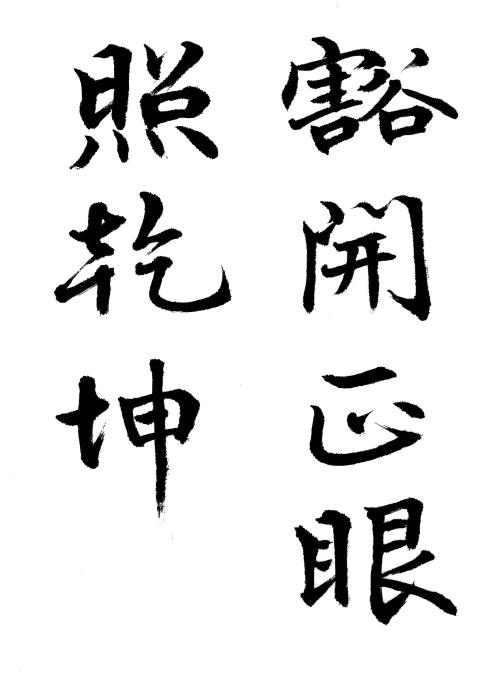 豁開正眼
照乾坤